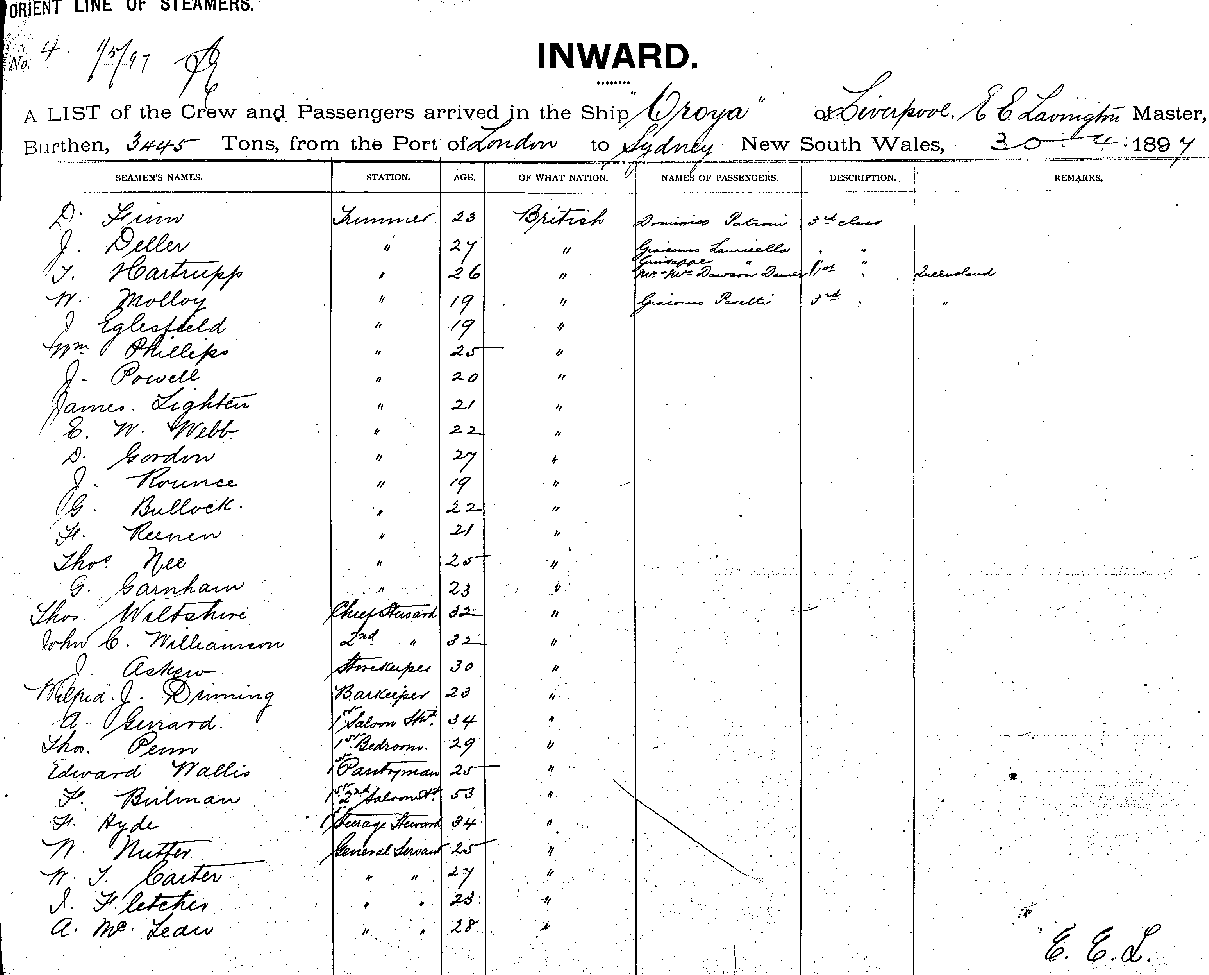 ORIENT LINE OF STEAMERS.
No. 4 1/5/97
INWARD.
A LIST of the Crew and Passengers arrived in the Ship "Oroya" of Liverpool. E E Lavington Master,
Burthen, 3445 Tons, from the Port of London to Sydney New South Wales, 30 . 4 . 1897
SEAMEN'S NAMES. STATION. AGE. OF WHAT NATION. NAMES OF PASSENGERS. DESCRIPTION. REMARKS.
D. Finn Trimmer 23 British Patroni 3rd class
J. Deller " 27 " Giacomo Lauricella " "
Giuseppe "
T. Hartrupp " 26 " Mr & Mrs Dawson 1st " Queensland
W. Molloy " 19 " Giacomo 3rd " "
J Eglesfield " 19 "
Wm Phillips " 25 "
J. Powell " 20 "
James. Lighten " 21 "
E. W. Webb " 22 "
D. Gordon " 27 "
J. Rounce " 19 "
G. Bullock. " 22 "
H. Reenen " 21 "
Thos Nee " 25 "
G. Garnham " 23 "
Thos. Wiltshire Chief Steward 32 "
John C. Williamson 2nd " 32 "
J. Askew Storekeeper 30 "
Wilfrid. J. Dimming Barkeeper 23 "
A. Gerrard. 1st Saloon Std. 34 "
Thos. Penn 1st Bedroom. 29 "
Edward Wallis 1st Pantryman 25 "
F. Bulman 1st 2nd Saloon St 53 "
H. Hyde 1st Steerage Steward 34 "
N. Nutter General Servant 25 "
W. T. Carter " " 27 "
J. Fletcher " " 23 "
A. McLean " " 28 "
E. E. L.